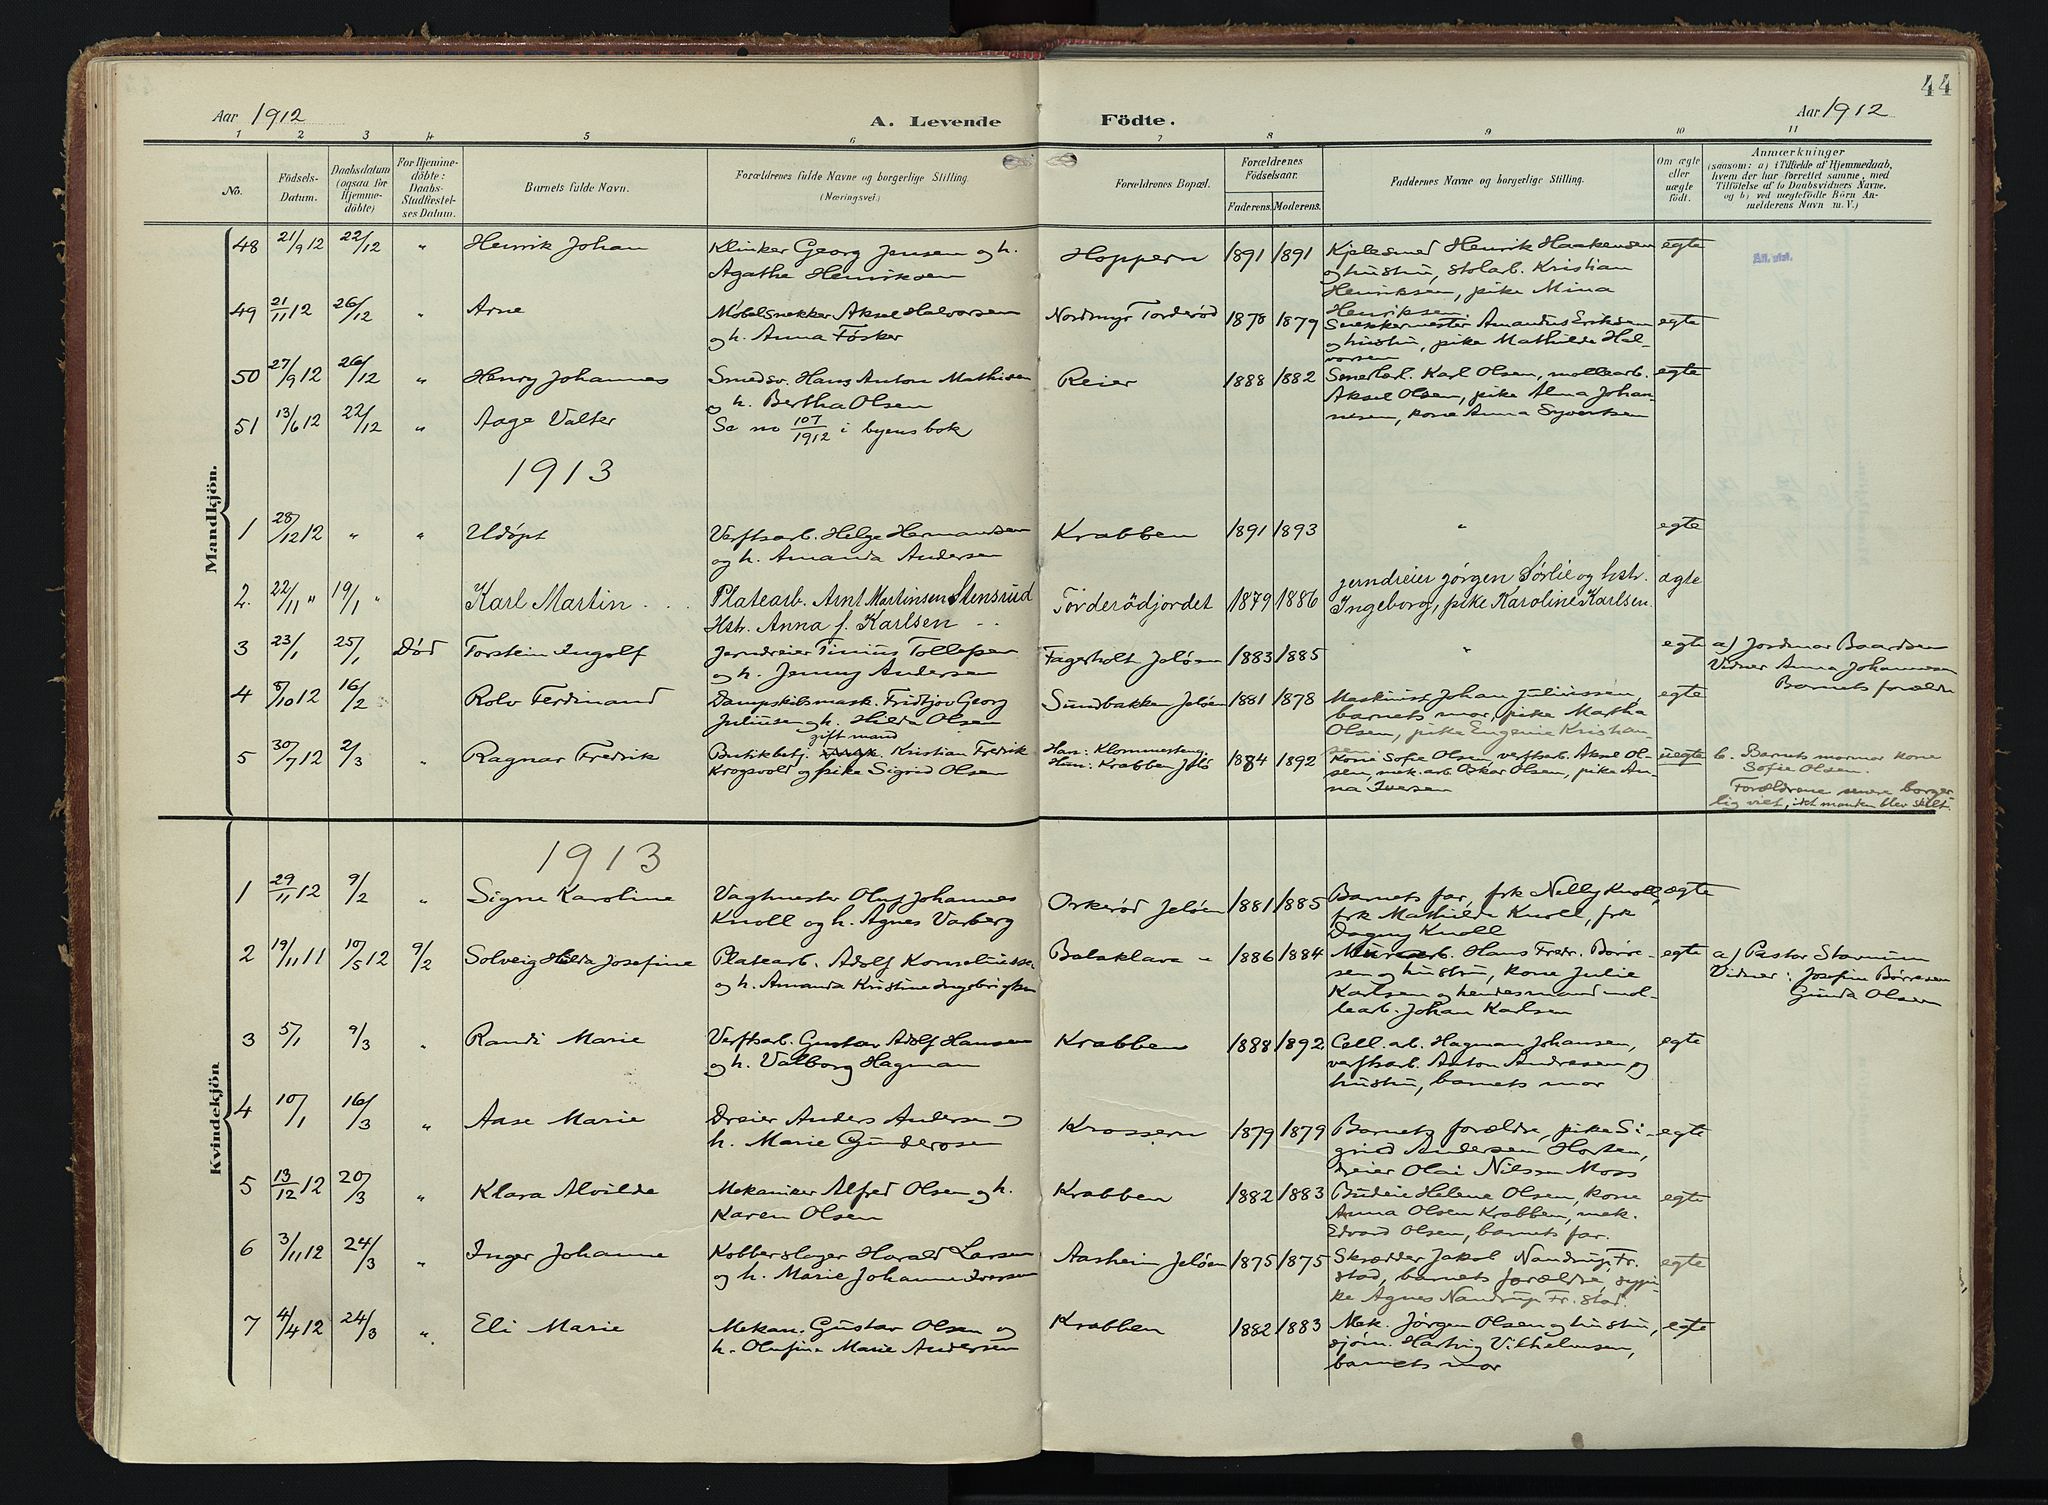 44
Aar 1912
A. Levende Födte.
Aar 1912
1 2 3 4 5 6 7 8 9 10 11
No.
Födsels-Datum.
Daabsdatum (ogsaa for Hjemme-döbte)
For Hjemme-döbte: Daabs-Stadfæstel-ses Datum.
Barnets fulde Navn.
Forældrenes fulde Navne og borgerlige Stilling. (Næringsvei.)
Forældrenes Bopæl.
Forældrenes Födselsaar.
Faderens. Moderens.
Faddernes Navne og borgerlige Stilling.
Om ægte eller uægte födt.
Anmærkninger
(saasom: a) i Tilfælde af Hjemmedaab,
hvem der har forrettet samme, med
Tilföielse af to Daabsvidners Navne,
og b) ved uægtefödte Börn An-
melderens Navn m. V.)
Mandkjön.
48 21/9 12 22/12 " Henrik Johan Klinker Georg Jensen og h. Hoppern 1891 1891 Kjelesmed Henrik Haakensen egte
Agathe Henriksen og hustru, stolarb. Kristian
Henriksen, pike Mina
Henriksen.
49 21/11 12 26/12 " Arne Møbelsnekker Aksel Halvorsen Nordmyr Torderød 1878 1879 Snekkermester Amandus Eriksen egte
og h. Anna Fosker og hustru, pike Mathilde Hal-
vorsen
50 27/9 12 26/12 " Henry Johannes Smedsv. Hans Anton Mathisen Reier 1888 1882 Karl Olsen, mollearb. egte
og h. Bertha Olsen Aksel Olsen, pike Alma Johan-
nesen, kone Anna Syvertsen
51 13/6 12 22/12 " Aage Valter Se no 107/1912 i byens bok
1913
1 28/12 12 " " Udøpt Verftsarb. Helge Hermandsen Krabben 1891 1893 " egte
og h. Amanda Andersen
2. 22/11 " 19/1 " Karl Martin . . Platearb. Arnt Martinsen Stensrud Torderödjordet 1879 1886 jerndreier Jörgen Sörlie og hstr. ægte
Hstr. Anna f. Karlsen - - Ingeborg, pike Karoline Karlsen.
3 23/1 25/1 Död Torstein Ingolf Jerndreier Tinius Tollefsen Fagerholt Jeløen 1883 1885 " egte a) Jordmor Baardsen
og h. Jenny Andersen Vidner Anna Johannesen
Barnets forældre
4 8/10 12 16/2 Rolv Ferdinand Dampskibsmask. Fridtjov Georg Sundbakken Jeløen 1881 1878 Maskinist Johan Juliussen, egte
Juliusen og h. Hilda Olsen barnets mor, pike Martha
Olsen, pike Eugenie Kristian-
sen
gift mand
5 30/7 12 2/3 " Ragnar Fredrik Butikbetj. Kristian Fredrik Han: Klommesteng. 1884 1892 Kone Sofie Olsen, verftsarb. Aksel Ol- uegte b. Barnets mormor kone
Krogsvold og pike Sigrid Olsen Hun: Krabben Jelö sen, mek. arb Oskar Olsen, pike An- Sofie Olsen.
na Iversen Forældrene senere borger-
lig viet, idet manden blev skilt.
Kvindekjön
1913
1 29/11 12 9/2 " Signe Karoline Vagtmester Oluf Johannes Orkerød Jeløen 1881 1885 Barnets far, frk Nelly Knoll, ægte
Knoll og h. Agnes Varberg frk Mathilde Knoll, frk
Dagny Knoll
2 19/11 11 10/5 12 9/2 Solveig Hilda Josefine Platearb. Adolf Korneliussen Balaklava " 1886 1884 Murerarb. Hans Fredr. Børre- egte a) Pastor Stavnum
og h. Amanda Kristine Ingebrigtsen sen og hustru, kone Julie Vidner: Josefine Børresen
Karlsen og hendes mand mol- Gunda Olsen
learb. Johan Karlsen
3 5/1 9/3 " Randi Marie Verftsarb. Gustav Adolf Hansen Krabben 1888 1892 Cell. arb. Hagman Johansen, egte
og h. Valborg Hagman verftsarb. Anton Andresen og
hustru, barnets mor
4 10/1 16/3 " Aase Marie Dreier Anders Andersen og Krossern 1879 1879 Barnets forældre, pike Si- egte
h. Marie Gundersen grid Andersen Horten,
dreier Olai Nilsen Moss
5 13/12 12 20/3 " Klara Alvilde Mekaniker Alfred Olsen og h. Krabben 1882 1883 Budeie Helene Olsen, kone egte
Karen Olsen Anna Olsen Krabben, mek.
Edvard Olsen, barnets far.
6 3/11 12 24/3 " Inger Johanne Kobberslager Harald Larsen Aasheim Jeløen 1875 1875 Skrædder Jakob Nandrup Fr. egte
og h. Marie Johanne Iversen stad, barnets forældre, sypi-
ke Agnes Nandrup Fr. stad.
7 4/4 12 24/3 " Eli Marie Mekan. Gustav Olsen og Krabben 1882 1883 Mek. Jørgen Olsen og hustru, egte
h. Olufine Marie Andersen sjøm. Hartvig Vilhelmsen,
barnets mor